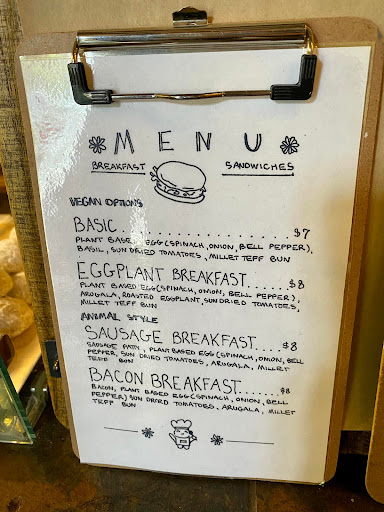 MENU
BREAKFAST SANDWICHES
VEGAN OPTIONS
BASIC.......................$7
PLANT BASED EGG (SPINACH, ONION, BELL PEPPER),
BASIL, SUN DRIED TOMATOES, MILLET TEFF BUN
EGGPLANT BREAKFAST......$8
PLANT BASED EGG (SPINACH, ONION, BELL PEPPER),
ARUGALA, ROASTED EGGPLANT, SUN DRIED TOMATOES,
MILLET TEFF BUN
ANIMAL STYLE
SAUSAGE BREAKFAST.....$8
SAUSAGE PATTY, PLANT BASED EGG (SPINACH, ONION, BELL
PEPPER, SUN DRIED TOMATOES, ARUGALA, MILLET
TEFF BUN
BACON BREAKFAST......$8
BACON, PLANT BASED EGG (SPINACH, ONION, BELL
PEPPER) SUN DRIED TOMATOES, ARUGALA, MILLET
TEFF BUN